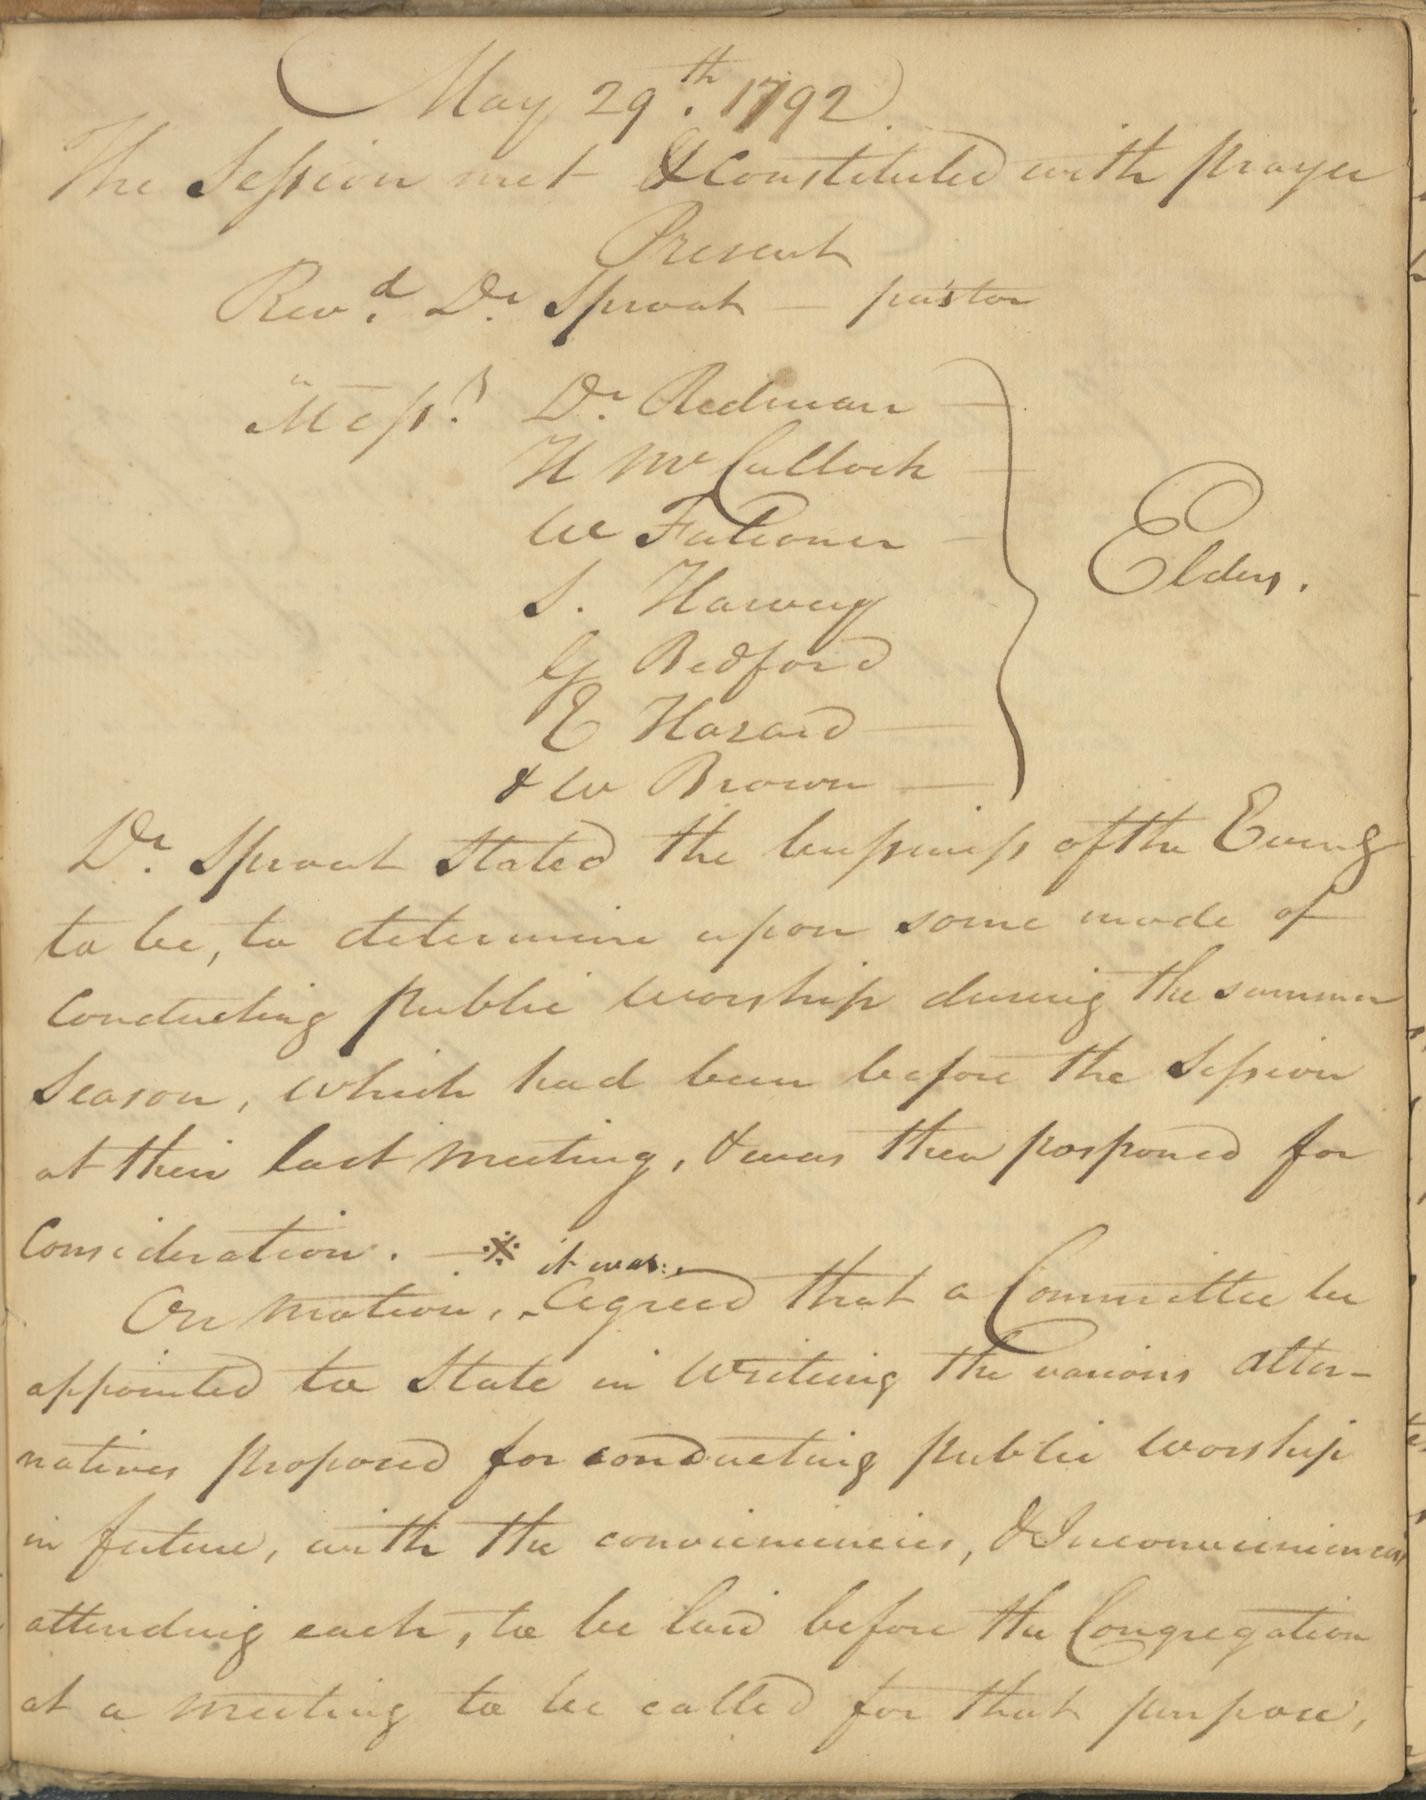 May 29th. 1792.
The Session met & Constituted with prayer
Present
Revd. Dr. Sproat — pastor
Messrs. Dr. Redman —
H McCulloch —
W Falconer —
S. Harvey
G Bedford
E Hazard —
& W Brown —
Elders.
Dr. Sproat Stated the bussiness of the Eveng
to be, to determine upon some mode of
Conducting public worship during the summer
Season, which had been before the Session
at their last meeting, & was then posponed for
Consideration. — ※ it was
On motion, Agreed that a Committee be
appointed to State in Writing the various alter-
natives proposed for conducting public worship
in future, with the conveniencies, & Inconveniencies
attending each, to be laid before the Congregation
at a meeting to be called for that purpose,